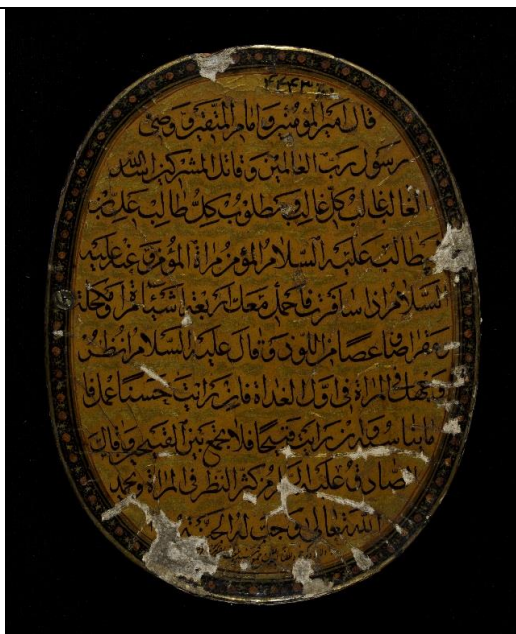 ٤٢٤٣
قال امير المؤمنين وامام المتقين ووصي
رسول رب العالمين وقاتل المشركين اسد الله
الغالب غالب كل غالب ومطلوب كل طالب علي بن
ابيطالب عليه السلام المؤمن مراة المؤمن وعنه عليه
السلام اذا سافرت فاحمل معك اربعة اشياء مراة ومكحلة
ومقراضا وعصا من اللوذ وقال عليه السلام انظر
وجهك في المراة في اول الغداة فان رايت حسنا عمدا
رايت قبيحا فلا تجمع بين القبيحين وقال
الصادق عليه من كثر النظر في المراة
الله تعالى وجب له الجنة